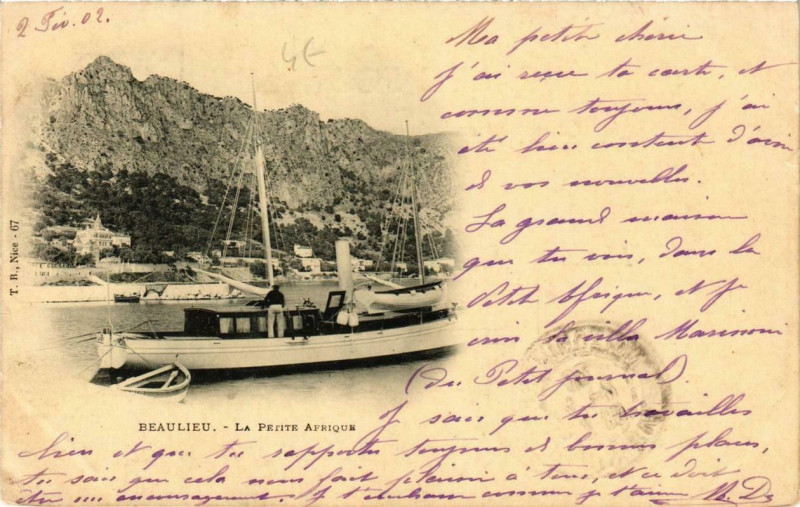 2 Fév. 02.
4€
Ma petite chérie
J'ai reçue ta carte, et
comme toujours, j'ai
été bien content d'avoir
de vos nouvelles.
La grande maison
que tu vois, dans la
Petite Afrique, est je
crois la villa Marinoni
(du Petit journal).
Je sais que tu travailles
bien et que tu rapportes toujours de bonnes places,
tu sais que cela nous fait plaisir à tous, et ce doit
être un encouragement. Je t'embrasse comme je t'aime
T. B., Nice - 67
BEAULIEU. - LA PETITE AFRIQUE